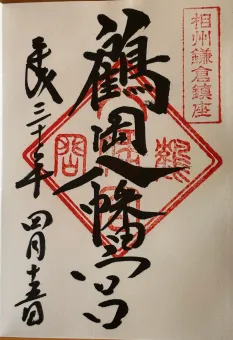 相州鎌倉鎮座
鶴岡八幡宮
平成三十年四月